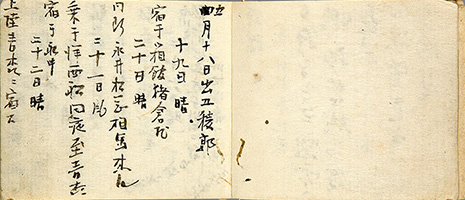 五月十八日出五稜郭
十九日 晴
宿于箱館猪倉屋
二十日 晴
同所永井松平相馬来ル
二十一日 風
乗于洋西船同夜至青森
宿于船中
二十二日 晴
上陸青森ニ宿ス